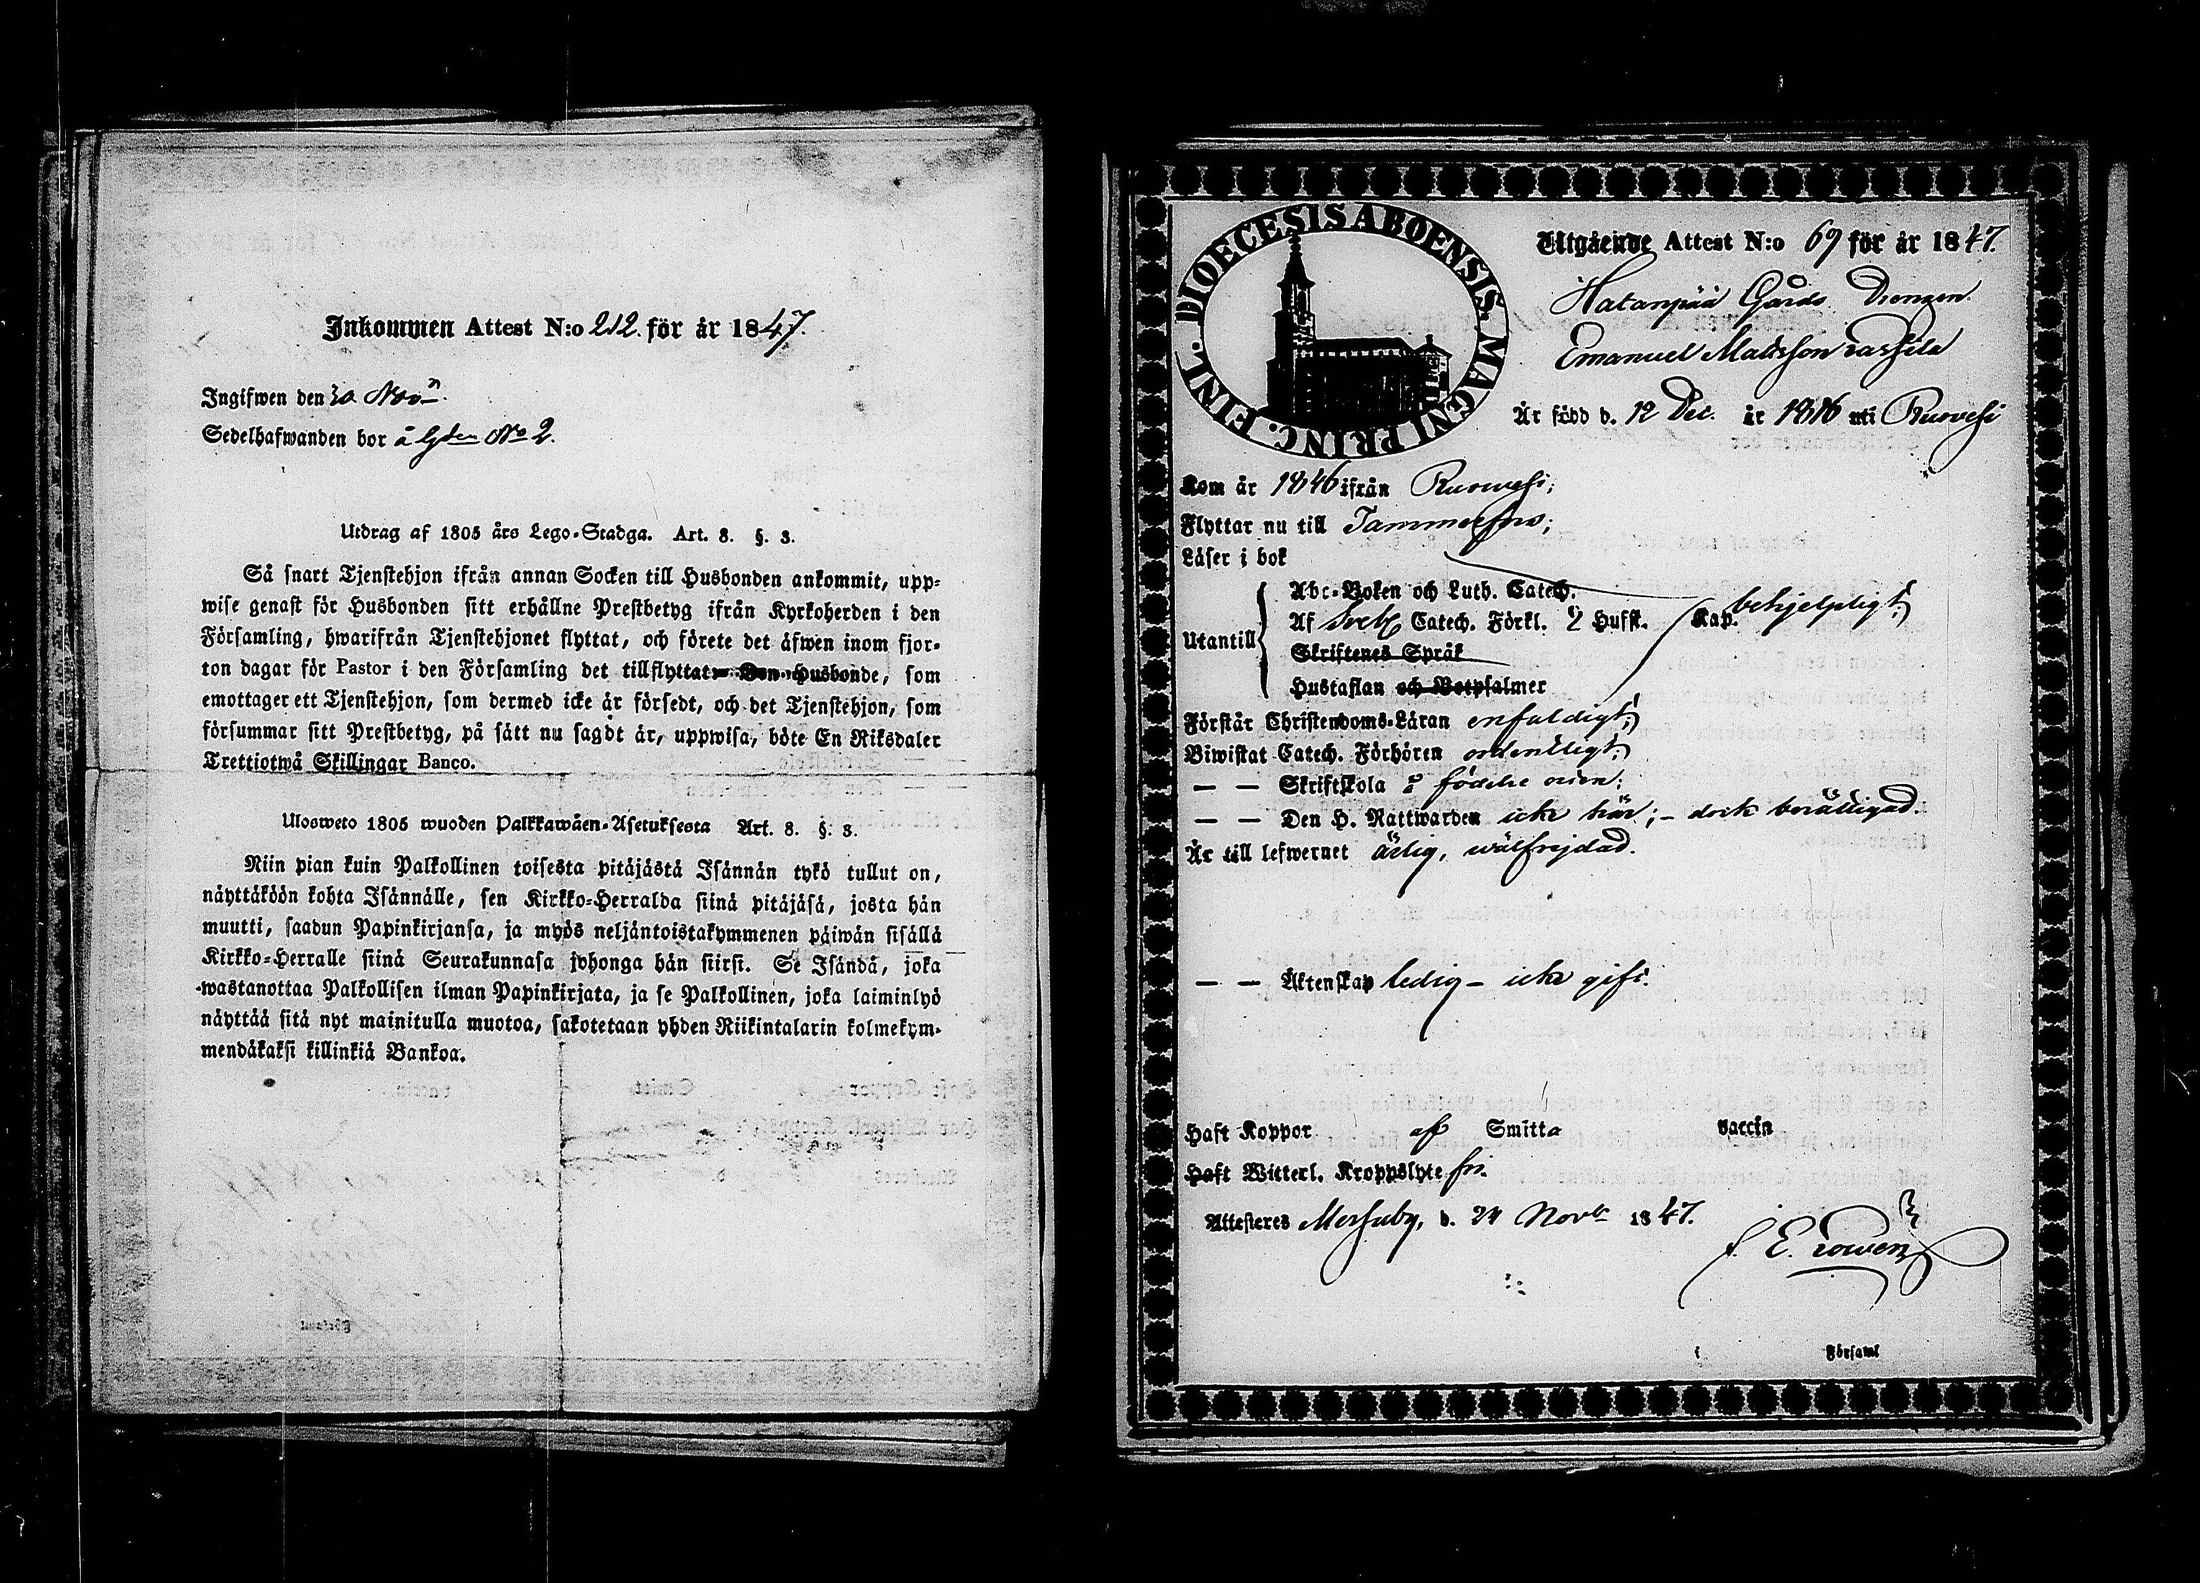 Inkommen Attest N:o 212. för år 1847.
Ingifwen den 30 Nov.
Sedelhafwanden bor å Gden No 2.
Utdrag af 1805 års Lego-Stadga. Art. 8. §. 8.
Så snart Tjenstehjon ifrån annan Socken till Husbonden ankommit, upp-
wise genast för Husbonden sitt erhållne Prestbetyg ifrån Kyrkoherden i den
Församling, hwarifrån Tjenstehjonet flyttat, och förete det äfwen inom fjor-
ton dagar för Pastor i den Församling det tillflyttat. Den Husbonde, som
emottager ett Tjenstehjon, som dermed icke är försedt, och det Tjenstehjon, som
försummar sitt Prestbetyg, på sätt nu sagdt är, uppwisa, böte En Riksdaler
Trettiotwå Skillingar Banco.
Ulosweto 1805 wuoden Palkkawäen-Asetuksesta Art. 8. §. 8.
Niin pian kuin Palkollinen toisesta pitäjästä Isännän tykö tullut on,
näyttäköön kohta Isännälle, sen Kirkko-Herralda siinä pitäjäsä, josta hän
muutti, saadun Papinkirjansa, ja myös neljäntoistakymmenen päiwän sisällä
Kirkko-Herralle siinä Seurakunnasa johonga hän siirsi. Se Isändä, joka
wastanottaa Palkollisen ilman Papinkirjata, ja se Palkollinen, joka laiminlyö
näyttää sitä nyt mainitulla muotoa, sakotetaan yhden Riikintalarin kolmekym-
mendäkaksi killinkiä Bankoa.
DIOECESIS ABOENSIS. MAGNI PRINC. FINL.
Utgående Attest N:o 69 för år 1847.
Hatanpää Gårds Drengen
Emanuel Matsson
Är född d. 12 Dec. år 1816 uti Ruovesi
Kom år 1846 ifrån Ruovesi;
Flyttar nu till Tammerfors;
Läser i bok
Abc-Boken och Luth. Catech.
Utantill Af Sveb Catech. Förkl. & Husst. Kap. behjelpligt;
Skriftenes Språk
Hustaflan och Botpsalmer
Förstår Christendoms-Läran enfaldigt;
Biwistat Catech. Förhören ordentligt;
— — Skriftskola å födelse orten;
— — Den H. Nattwarden icke här; – dock berättigad.
Är till lefwernet ärlig, wälfrejdad.
— — Äktenskap ledig – icke gift.
Haft Koppor af Smitta vaccin
Haft Witterl. Kroppslyte fri.
Attesteres Messuby, d. 24 Novbr 1847.
i Församl